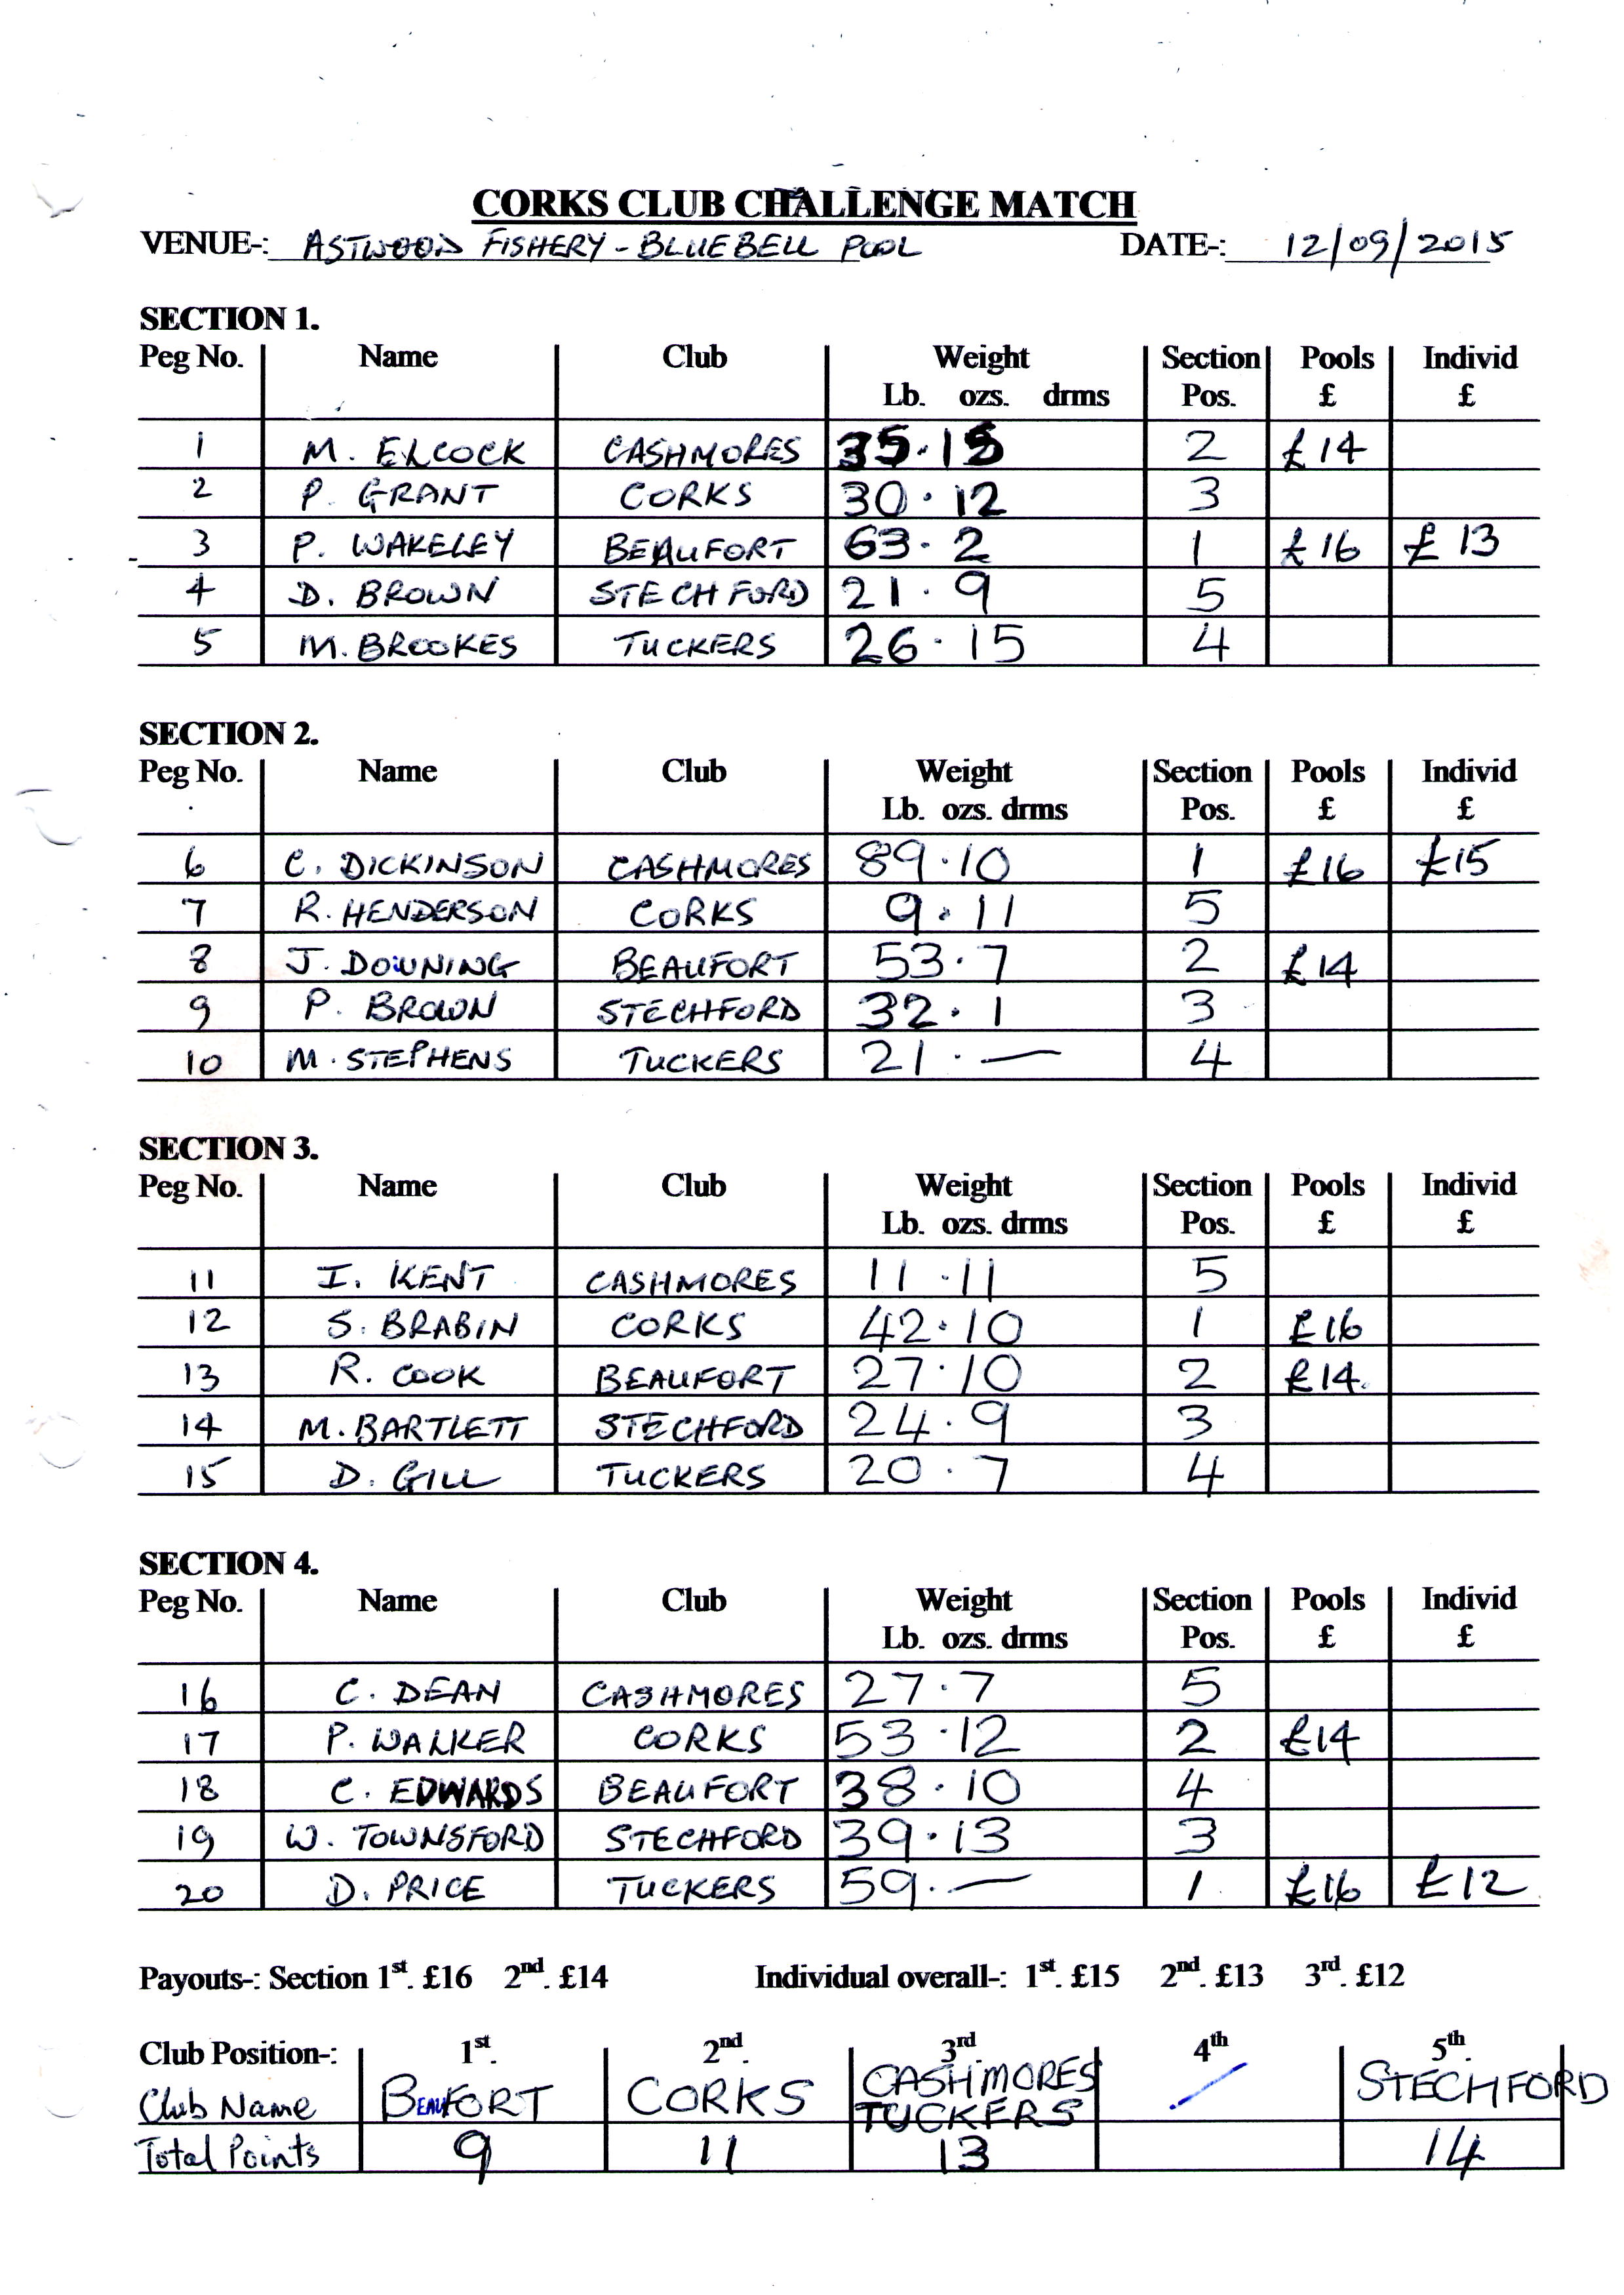 CORKS CLUB CHALLENGE MATCH
VENUE-: ASTWOOD FISHERY - BLUEBELL POOL DATE-: 12/09/2015
SECTION 1.
Peg No. Name Club Weight Section Pools Individ
Lb. ozs. drms Pos. £ £
1 M. ELCOCK CASHMORES 35.15 2 £14
2 P. GRANT CORKS 30.12 3
3 P. WAKELEY BEAUFORT 63.2 1 £16 £13
4 D. BROWN STECHFORD 21.9 5
5 M. BROOKES TUCKERS 26.15 4
SECTION 2.
Peg No. Name Club Weight Section Pools Individ
Lb. ozs. drms Pos. £ £
6 C. DICKINSON CASHMORES 89.10 1 £16 £15
7 R. HENDERSON CORKS 9.11 5
8 J. DOWNING BEAUFORT 53.7 2 £14
9 P. BROWN STECHFORD 32.1 3
10 M. STEPHENS TUCKERS 21.— 4
SECTION 3.
Peg No. Name Club Weight Section Pools Individ
Lb. ozs. drms Pos. £ £
11 I. KENT CASHMORES 11.11 5
12 S. BRABIN CORKS 42.10 1 £16
13 R. COOK BEAUFORT 27.10 2 £14.
14 M. BARTLETT STECHFORD 24.9 3
15 D. GILL TUCKERS 20.7 4
SECTION 4.
Peg No. Name Club Weight Section Pools Individ
Lb. ozs. drms Pos. £ £
16 C. DEAN CASHMORES 27.7 5
17 P. WALKER CORKS 53.12 2 £14
18 C. EDWARDS BEAUFORT 38.10 4
19 W. TOWNSFORD STECHFORD 39.13 3
20 D. PRICE TUCKERS 59.— 1 £16 £12
Payouts-: Section 1st. £16 2nd. £14 Individual overall-: 1st. £15 2nd. £13 3rd. £12
Club Position-: 1st. 2nd. 3rd. 4th 5th.
Club Name BEAUFORT CORKS CASHMORES TUCKERS / STECHFORD
Total Points 9 11 13 14